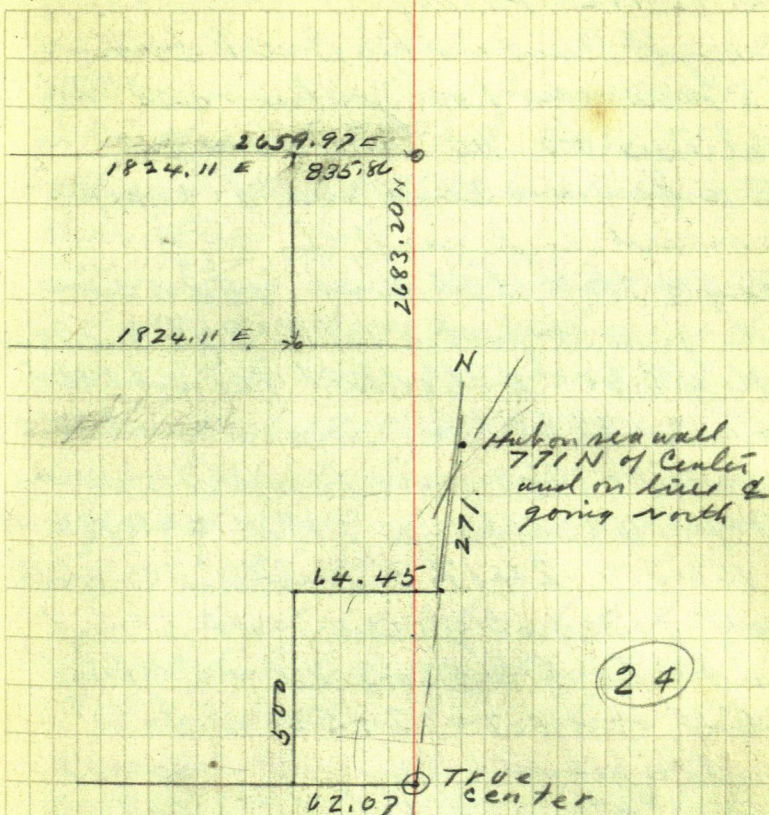 2659.97 E
1824.11 E 835.86
2683.20 N
1824.11 E
N
Hub on sea wall
771 N of Center
and on line ℄
going north
271.
64.45
24
500
True
center
62.07